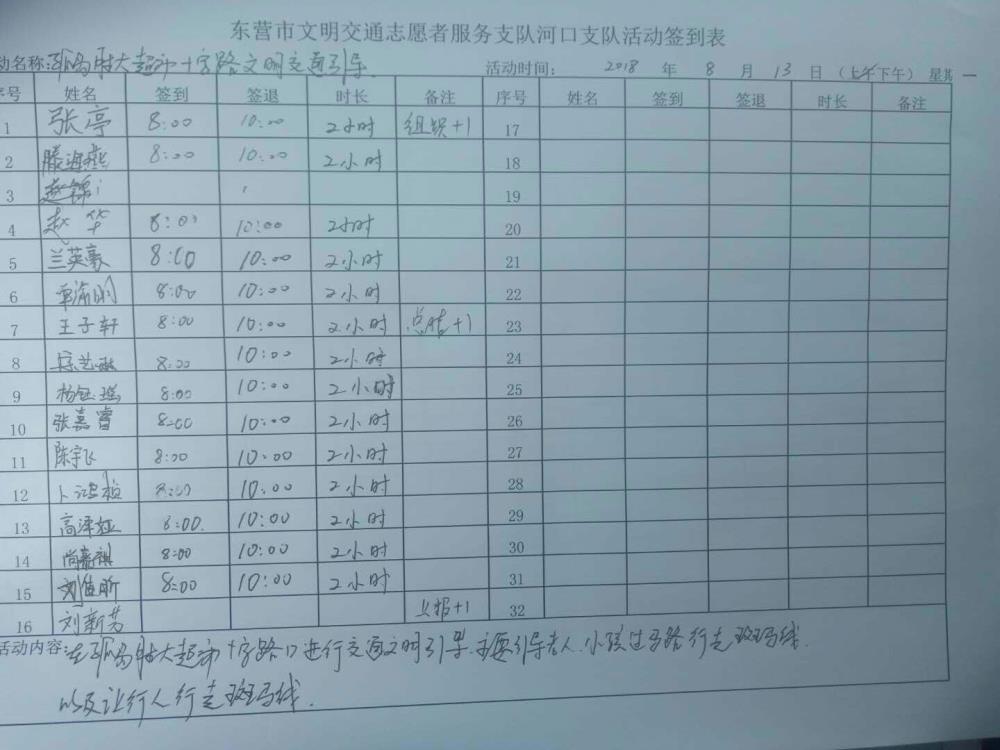 东营市文明交通志愿者服务支队河口支队活动签到表
动名称: 大超市十字路文明交通引导. 活动时间: 2018 年 8 月 13 日 (上午下午) 星期 一
序号 姓名 签到 签退 时长 备注 序号 姓名 签到 签退 时长 备注
1 张亭 8:00 10:00 2小时 组织+1 17
2 滕海燕 8:00 10:00 2小时 18
3 赵锦 19
4 赵华 8:00 10:00 2小时 20
5 兰英豪 8:00 10:00 2小时 21
6 8:00 10:00 2小时 22
7 王子轩 8:00 10:00 2小时 总结+1 23
8 8:00 10:00 2小时 24
9 杨钰瑶 8:00 10:00 2小时 25
10 张嘉睿 8:00 10:00 2小时 26
11 陈宇飞 8:00 10:00 2小时 27
12 8:00 10:00 2小时 28
13 高泽 8:00. 10:00 2小时 29
14 尚嘉祺 8:00 10:00 2小时 30
15 刘 昕 8:00 10:00 2小时 31
16 刘新芳 上报+1 32
活动内容: 在 大超市十字路口进行交通文明引导.主要引导老人.小孩过马路行走斑马线.
以及让行人行走斑马线.